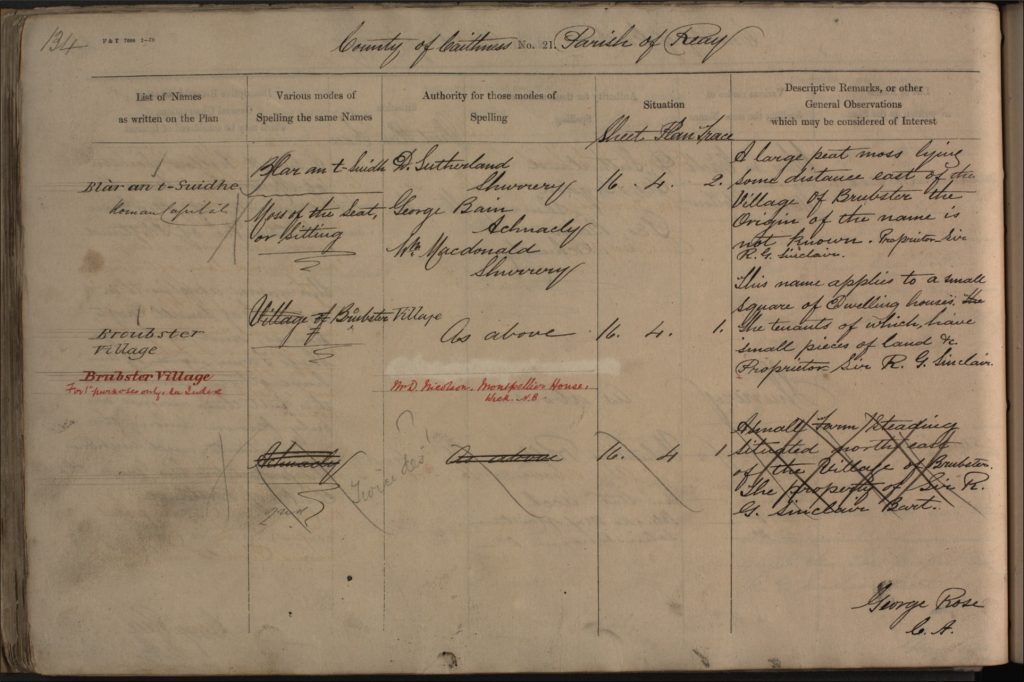 134
V & T 7000 3-75
County of Caithness No. 21. Parish of Reay
List of Names
as written on the Plan
Various modes of
Spelling the same Names
Authority for those modes of
Spelling
Situation
Sheet Plan Trace
Descriptive Remarks, or other
General Observations
which may be considered of Interest
Blàr an t-Suidhe
Roman Capital
Blar an t-Suidh
Moss of the Seat,
or Sitting
D. Sutherland
Shurrery
George Bain
Achnacly
Wm Macdonald
Shurrery
16. 4. 2.
A large peat moss lying
some distance east of the
Village of Brubster the
Origin of the name is
not known. Proprietor Sir
R. G. Sinclair.
Broubster
Village
Village of Brubster Village
As above
16. 4. 1.
This name applies to a small
Square of Dwelling houses. The
the tenants of which, have
small pieces of land &c
Proprietor Sir R. G. Sinclair.
Brubster Village
For 1" purposes only, see Index
Mr D. Nicolson. Montpellier House,
Wick. N.B
Achnacly
As above
Twice des
16. 4 1
A small Farm Steading
situated north east
of the Village of Brubster.
The property of Sir R.
G. Sinclair Bart.
George Rose
C. A.